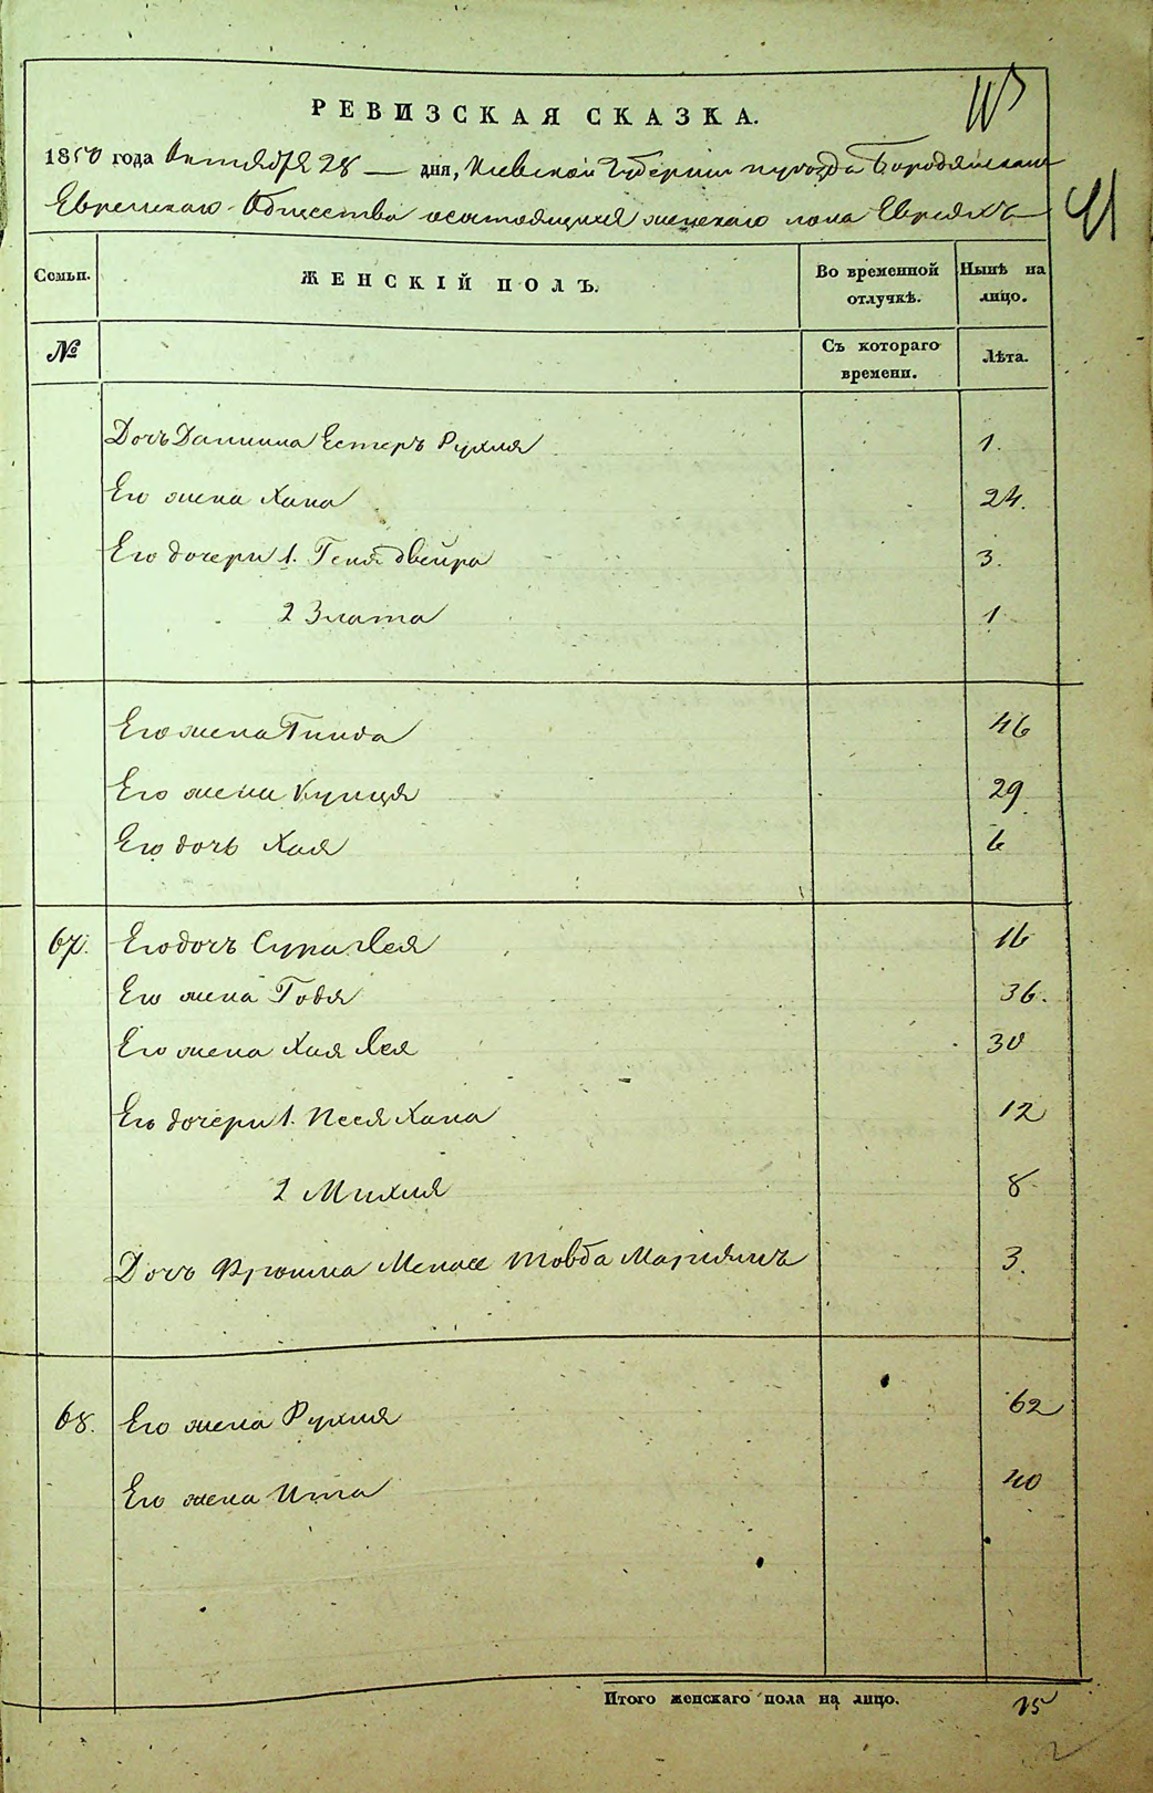 РЕВИЗСКАЯ СКАЗКА.
1850 года Октября 28 — дня, Киевской Губернии и уезда Бородянскаго
Еврейскаго Общества о состоящихъ женскаго пола Евреяхъ
41
Семьи. ЖЕНСКІЙ ПОЛЪ. Во временной отлучкѣ. Нынѣ на лицо.
№ Съ котораго времени. Лѣта.
Дочь Даниила Естеръ Рухля 1.
Его жена Хана 24.
Его дочери 1. Геня Двейра 3.
2 Злата 1
Его жена Гинда 46
Его жена Купця 29
Его дочь Хая 6
67. Его дочь Сура Лея 16
Его жена Годя 36.
Его жена Хая Лея 30
Его дочери 1. Песя Хана 12
2 Михля 8
Дочь Фроима Менаше Товба Маріямъ 3.
68. Его жена Рухля 62
Его жена Ита 40
Итого женскаго пола на лицо. 15
2